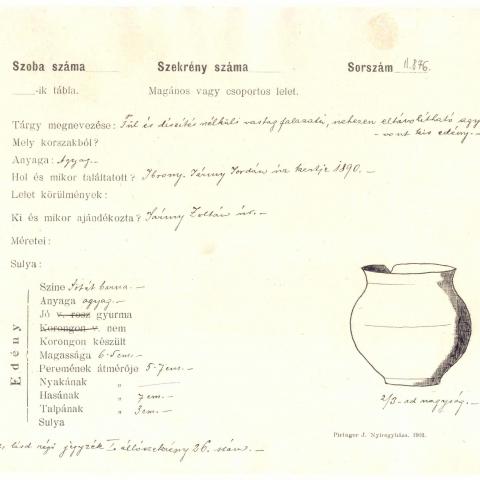 Szoba száma Szekrény száma Sorszám II.876.
-ik tábla. Magános vagy csoportos lelet.
Tárgy megnevezése: Fül és díszítés nélküli vastag falazatú, nehezen eltávolítható
-vont kis edény.-
Mely korszakból?
Anyaga: Agyag.-
Hol és mikor találtatott? Ibrony. Jármy Jordán úr kertje 1890.-
Lelet körülmények:
Ki és mikor ajándékozta? Jármy Zoltán úr.-
Méretei:
Sulya:
Edény
Szine Sötét barna.-
Anyaga agyag.-
Jó v. rosz gyurma
Korongon v. nem
Korongon készült
Magassága 6·5 cm.-
Peremének átmérője 5·7 cm.-
Nyakának „
Hasának „ 7 cm.-
Talpának „ 3 cm.-
Sulya
2/3-ad nagyság.-
Piringer J. Nyiregyháza. 1902.
lásd régi jegyzék I. állószekrény 26. szám.-